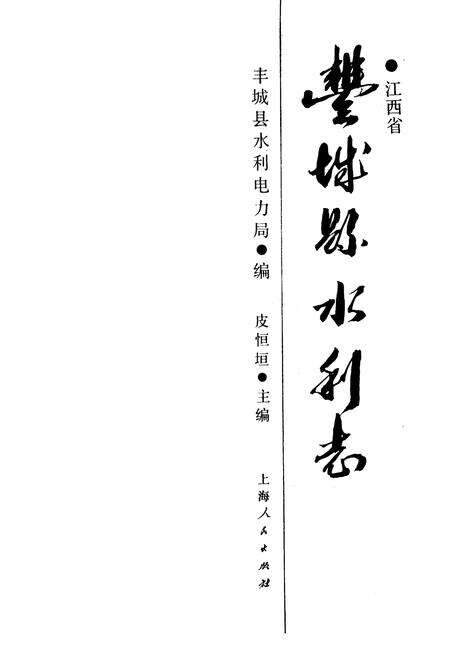 ●江西省
豐城縣水利志
丰城县水利电力局●编
皮恒垣●主编
上海人民出版社